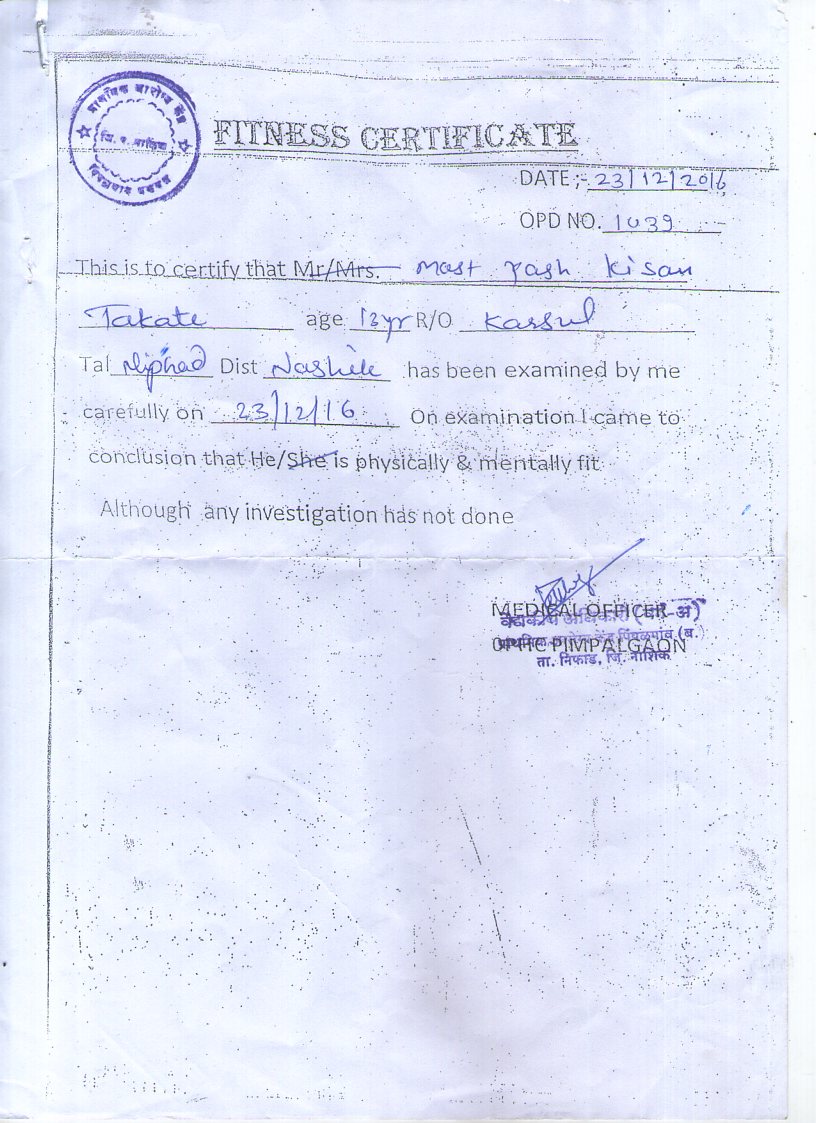 प्राथमिक आरोग्य केंद्र
जि. प. नाशिक
FITNESS CERTIFICATE
DATE :- 23/12/2016
OPD NO. 1039
This is to certify that Mr/Mrs. Mast Yash Kisan
Takate age 13yr R/O Karsul
Tal Niphad Dist Nashik has been examined by me
carefully on 23/12/16 On examination I came to
conclusion that He/She is physically & mentally fit
Although any investigation has not done
MEDICAL OFFICER
वैद्यकीय अधिकारी
PHC PIMPALGAON
प्राथमिक आरोग्य केंद्र पिंपळगांव (ब.)
ता. निफाड, जि. नाशिक